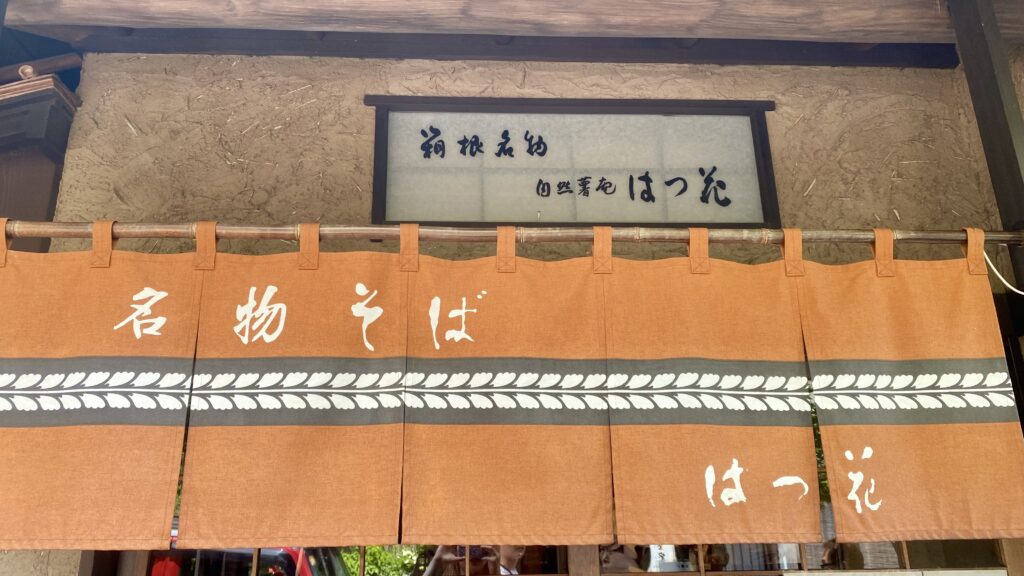 箱根名物
自然薯庵 はつ花
名物そば
はつ花